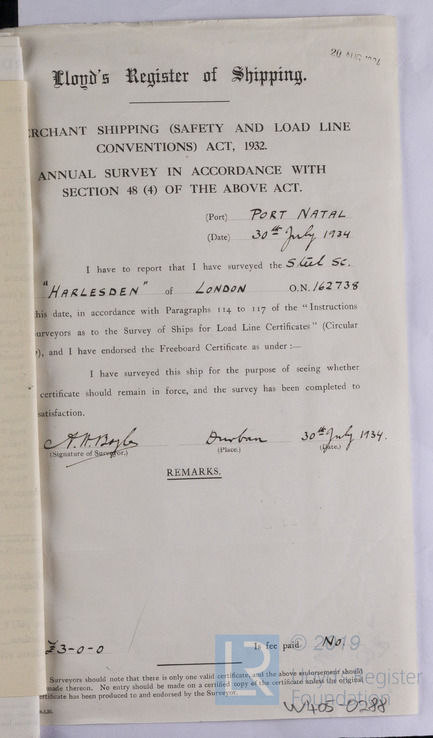 20 AUG 1934
Lloyd's Register of Shipping.
ERCHANT SHIPPING (SAFETY AND LOAD LINE
CONVENTIONS) ACT, 1932.
ANNUAL SURVEY IN ACCORDANCE WITH
SECTION 48 (4) OF THE ABOVE ACT.
(Port) PORT NATAL
(Date) 30th July 1934
I have to report that I have surveyed the Steel Sc.
"HARLESDEN" of LONDON O.N. 162738
his date, in accordance with Paragraphs 114 to 117 of the "Instructions
urveyors as to the Survey of Ships for Load Line Certificates" (Circular
), and I have endorsed the Freeboard Certificate as under :—
I have surveyed this ship for the purpose of seeing whether
certificate should remain in force, and the survey has been completed to
satisfaction.
A. H. Boyle Durban 30th July 1934.
(Signature of Surveyor.) (Place.) (Date.)
REMARKS.
£3-0-0 Is fee paid No
Surveyors should note that there is only one valid certificate, and the above endorsement should
made thereon. No entry should be made on a certified copy of the certificate unless the original
ertificate has been produced to and endorsed by the Surveyor.
© 2019
Lloyd's Register
Foundation
LR
W405-0288